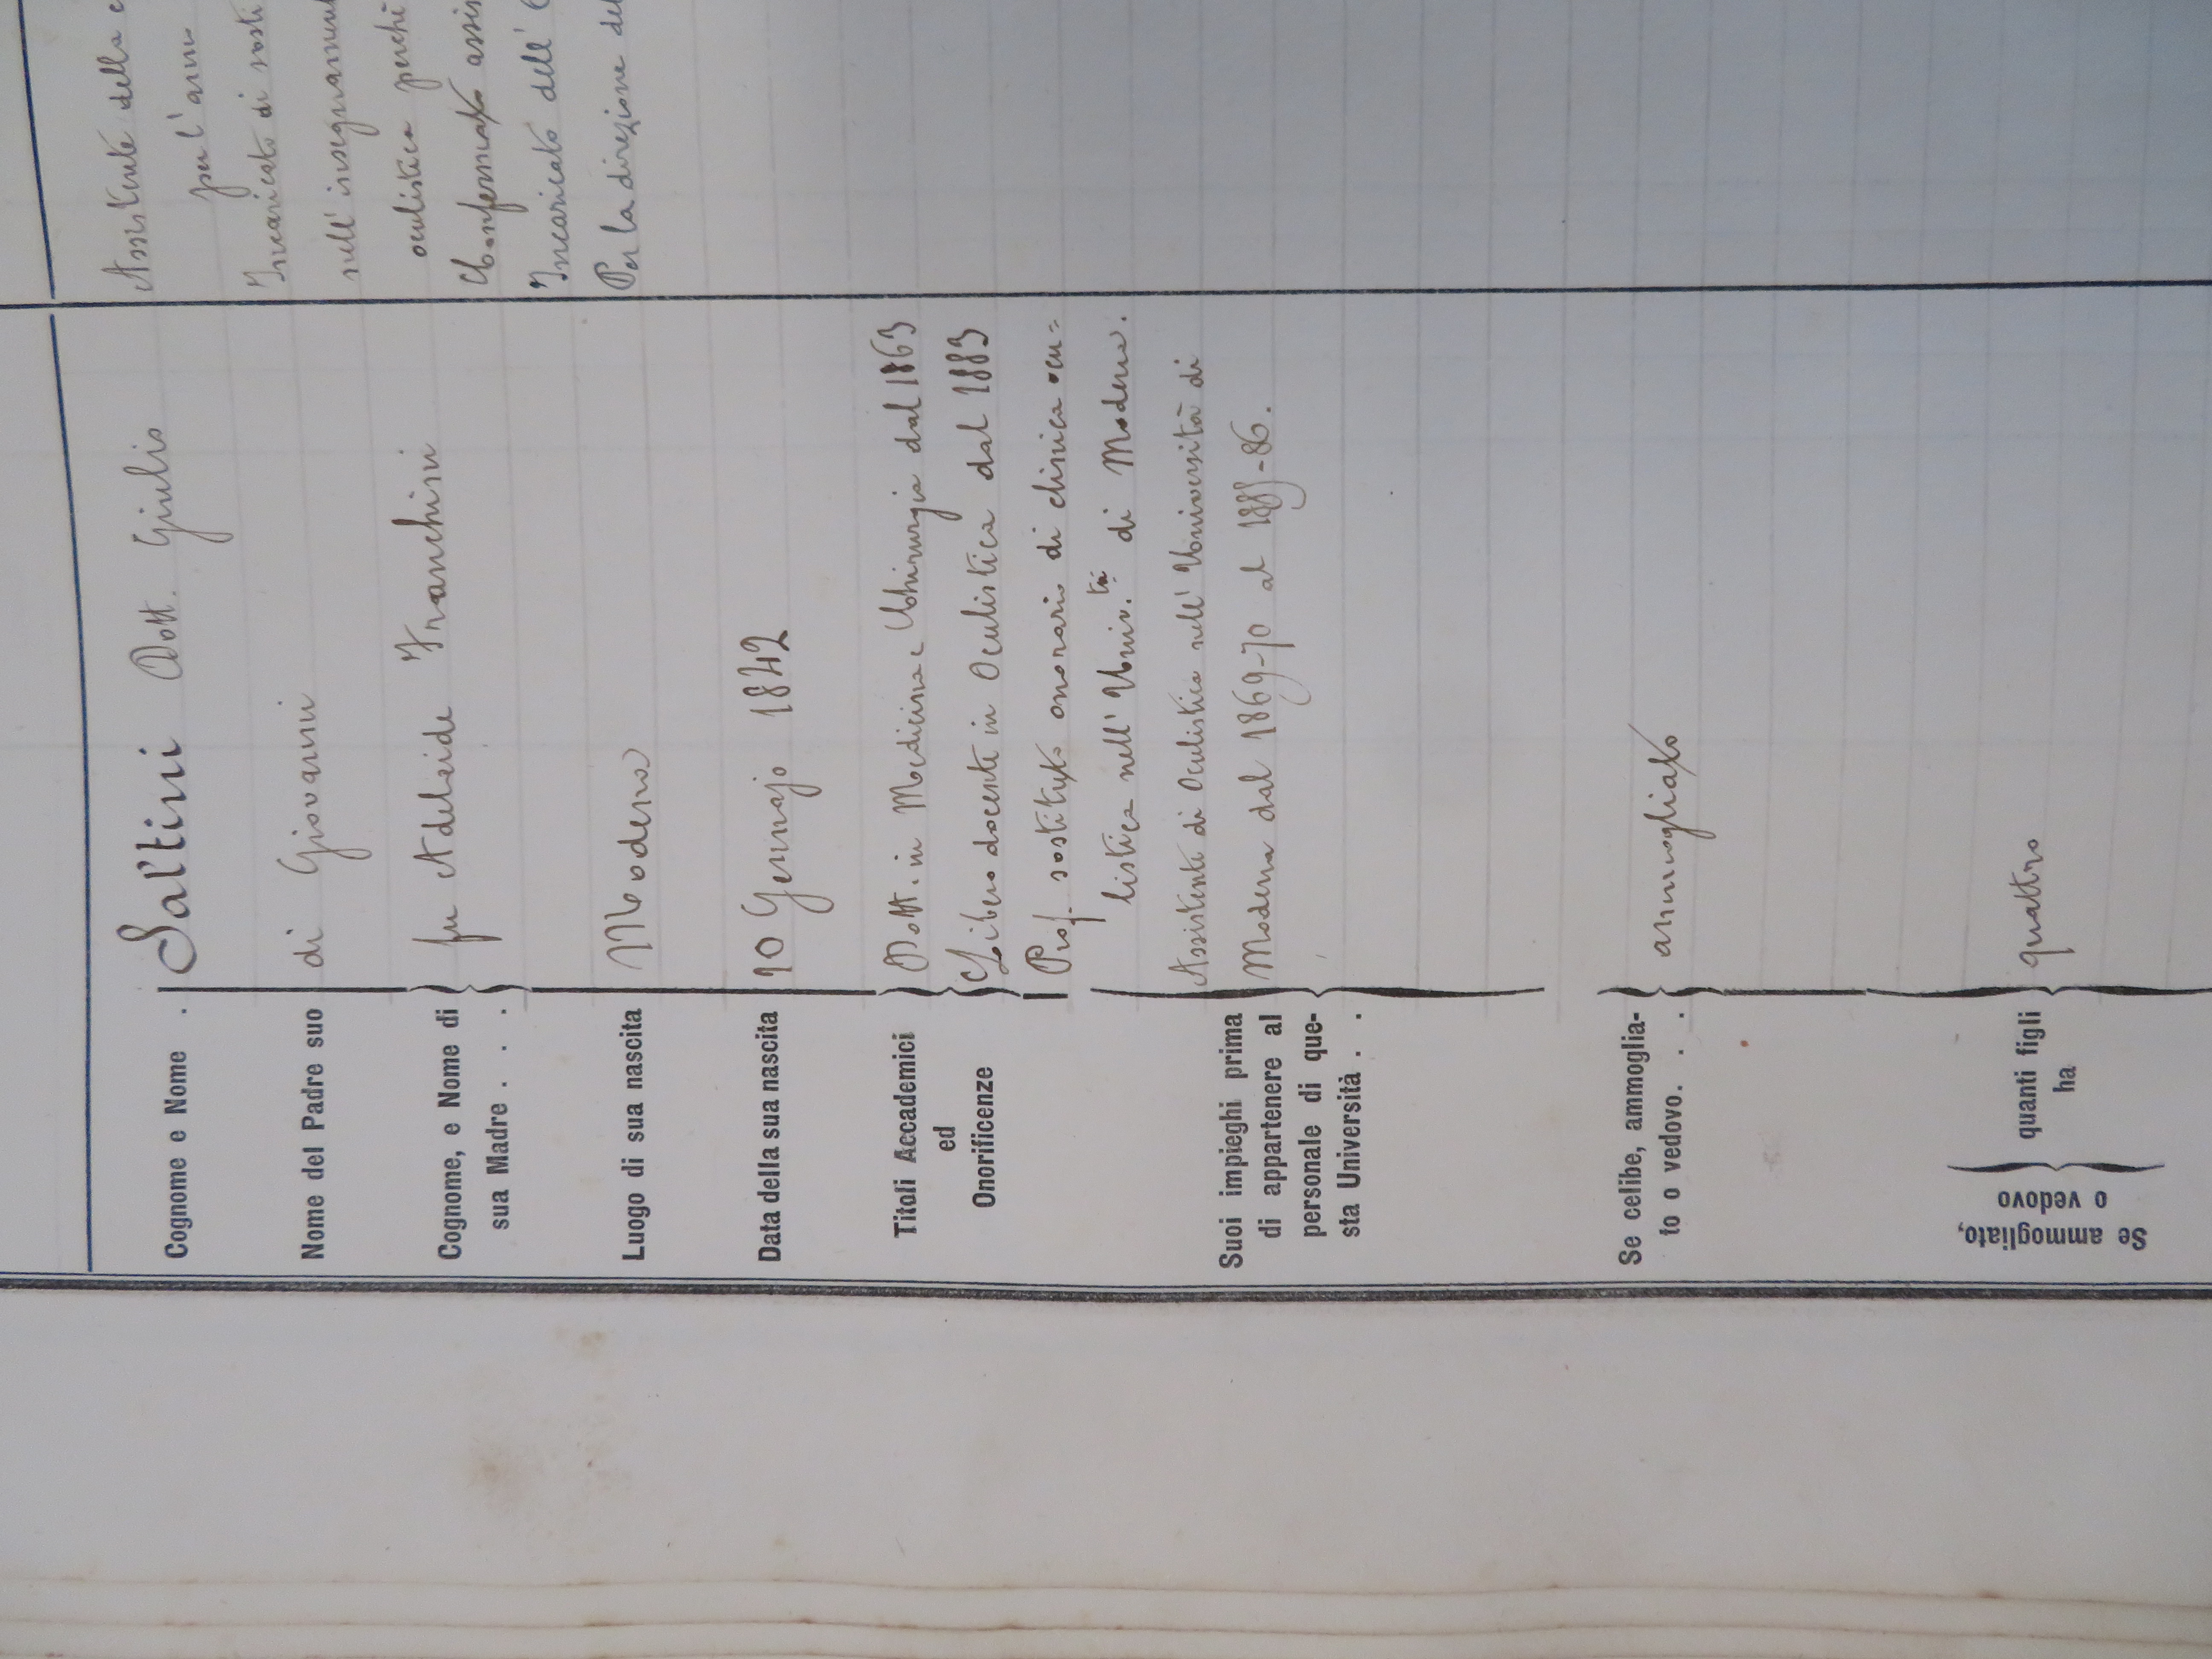 Cognome e Nome . Saltini Dott. Giulio
Nome del Padre suo di Giovanni
Cognome, e Nome di
sua Madre . . . fu Adelaide Franchini
Luogo di sua nascita Modena
Data della sua nascita 10 Gennajo 1842
Titoli Accademici
ed
Onorificenze
Dott. in Medicina e Chirurgia dal 1863
Libero docente in Oculistica dal 1883
Prof. sostituto onorario di clinica ocu=
listica nell' Univ.tà di Modena.
Suoi impieghi prima
di appartenere al
personale di que-
sta Università . .
Assistente di Oculistica nell' Università di
Modena dal 1869-70 al 1885-86.
Se celibe, ammoglia-
to o vedovo. . . ammogliato
Se ammogliato,
o vedovo
quanti figli
ha
quattro
Assistente della
per l'anno
Incaricato di sosti
nell' insegnament
oculistica perchè
Confermato assis
Incaricato dell'
Per la direzione del